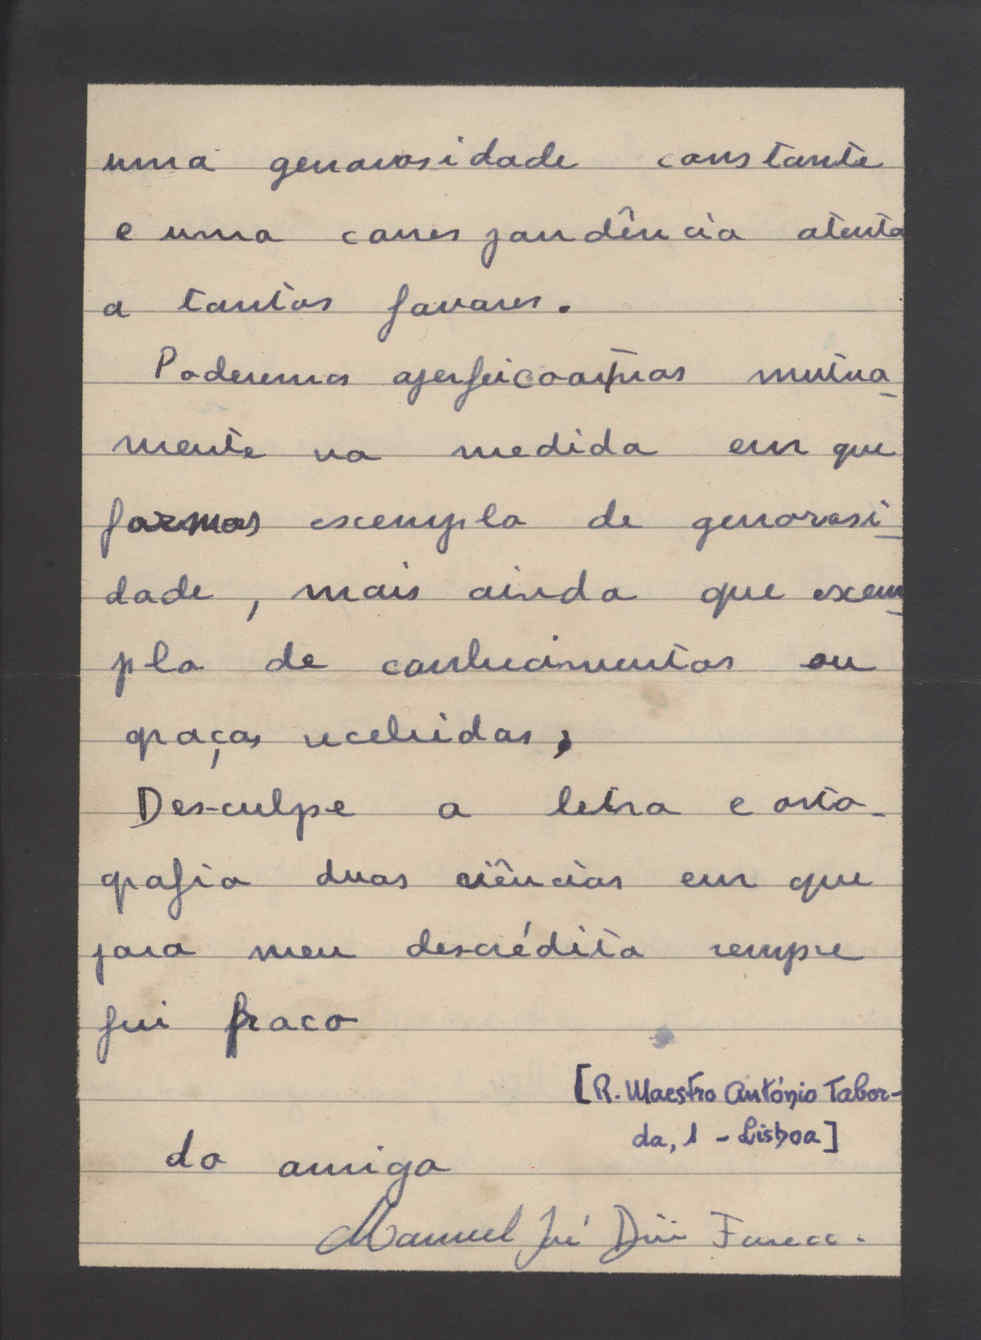 uma generosidade constante
e uma correspondência atenta
a tantos favores.
Poderemos aperfeiçoarmos mutua-
mente na medida em que
formos exemplo de generosi-
dade, mais ainda que exem-
plo de conhecimentos ou
graças recebidas;
Desculpe a letra e orto-
grafia duas ciências em que
para meu descrédito sempre
fui fraco
[R. Maestro António Tabor-
da, 1 - Lisboa]
do amigo
Manuel José Dias Fonseca.